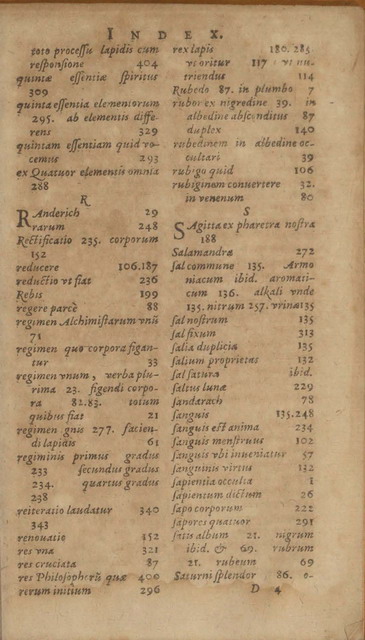 INDEX.
toto processu lapidis cum
responsione 404
quintæ essentiæ spiritus
309
quinta essentia elementorum
295. ab elementis diffe-
rens 329
quintam essentiam quid vo-
cemus 293
ex Quatuor elementis omnia
288
R
RAnderich 29
rarum 248
Rectificatio 235. corporum
152
reducere 106.187
reductio vt fiat 236
Rebis 199
regere parcè 88
regimen Alchimistarum vnũ
71
regimen quo corpora figan-
tur 33
regimen vnum, verba plu-
rima 23. figendi corpo-
ra 82.83. totum
quibus fiat 21
regimen gnis 277. facien-
di lapidis 61
regiminis primus gradus
233 secundus gradus
234. quartus gradus
238
reiteratio laudatur 340
343
renouatio 452
res vna 321
res cruciata 87
res Philosophorũ quæ 400
rerum initium 296
rex lapis 180. 285.
vt oritur 117 vt nu-
triendus 114
Rubedo 87. in plumbo 7
rubor ex nigredine 39. in
albedine absconditus 87
duplex 140
rubedinem in albedine oc-
cultari 39
rubigo quid 106
rubiginem conuertere 32.
in venenum 80
S
SAgitta ex pharetra nostra
188
Salamandra 272
sal commune 135. Armo
niacum ibid. aromati-
cum 136. alkali vnde
135. nitrum 257. vrinæ 135
sal nostrum 135
sal fixum 313
salia duplicia 135
salium proprietas 132
sal satura ibid.
saltus lunæ 229
sandarach 78
sanguis 135.248
sanguis est anima 234
sanguis menstruus 102
sanguis vbi inueniatur 57
sanguinis virtus 132
sapientia occulta 1
sapientum dictum 26
sapo corporum 222
sapores quatuor 291
satis album 21. nigrum
ibid. & 69. rubrum
21. rubeum 69
Saturni splendor 86. o-
D 4